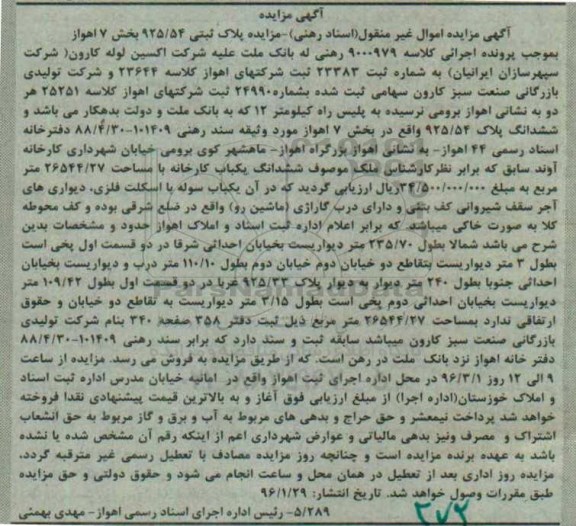 آگهی مزایده
آگهی مزایده اموال غیر منقول(اسناد رهنی)-مزایده پلاک ثبتی ۹۲۵/۵۴ بخش ۷ اهواز
بموجب پرونده اجرائی کلاسه ۹۰۰۰۹۷۹ رهنی له بانک ملت علیه شرکت اکسین لوله کارون( شرکت
سپهرسازان ایرانیان) به شماره ثبت ۲۳۳۸۳ ثبت شرکتهای اهواز کلاسه ۲۳۶۴۴ و شرکت تولیدی
بازرگانی صنعت سبز کارون سهامی ثبت شده بشماره ۲۴۹۹۰ ثبت شرکتهای اهواز کلاسه ۲۵۲۵۱ هر
دو به نشانی اهواز برومی نرسیده به پلیس راه کیلومتر ۱۲ که به بانک ملت و دولت بدهکار می باشد و
ششدانگ پلاک ۹۲۵/۵۴ واقع در بخش ۷ اهواز مورد وثیقه سند رهنی ۱۰۱۴۰۹-۸۸/۴/۳۰ دفترخانه
اسناد رسمی ۴۴ اهواز- به نشانی اهواز بزرگراه اهواز- ماهشهر کوی برومی خیابان شهرداری کارخانه
آوند سابق که برابر نظرکارشناس ملک موصوف ششدانگ یکباب کارخانه با مساحت ۲۶۵۴۴/۲۷ متر
مربع به مبلغ ۳۴/۵۰۰/۰۰۰/۰۰۰ریال ارزیابی گردید که در آن یکباب سوله با اسکلت فلزی، دیواری های
آجر سقف شیروانی کف بتنی و دارای درب گاراژی (ماشین رو) واقع در ضلع شرقی بوده و کف محوطه
کلا به صورت خاکی میباشد. که برابر اعلام اداره ثبت اسناد و املاک اهواز حدود و مشخصات بدین
شرح می باشد شمالا بطول ۲۳۵/۷۰ متر دیواریست بخیابان احداثی شرقا در دو قسمت اول پخی است
بطول ۳ متر دیواریست بتقاطع دو خیابان دوم خیابان دوم بطول ۱۱۰/۱۰ متر درب و دیواریست بخیابان
احداثی جنوبا بطول ۲۴۰ متر دیوار به دیوار پلاک ۹۲۵/۳۳ غربا در دو قسمت اول بطول ۱۰۹/۴۲ متر
دیواریست بخیابان احداثی دوم پخی است بطول ۳/۱۵ متر دیواریست به تقاطع دو خیابان و حقوق
ارتفاقی ندارد بمساحت ۲۶۵۴۴/۲۷ متر مربع ذیل ثبت دفتر ۳۵۸ صفحه ۳۴۰ بنام شرکت تولیدی
بازرگانی صنعت سبز کارون میباشد سابقه ثبت و سند دارد که برابر سند رهنی ۱۰۱۴۰۹-۸۸/۴/۳۰
دفتر خانه اهواز نزد بانک ملت در رهن است. که از طریق مزایده به فروش می رسد. مزایده از ساعت
۹ الی ۱۲ روز ۹۶/۳/۱ در محل اداره اجرای ثبت اهواز واقع در امانیه خیابان مدرس اداره ثبت اسناد
و املاک خوزستان(اداره اجرا) از مبلغ ارزیابی فوق آغاز و به بالاترین قیمت پیشنهادی نقدا فروخته
خواهد شد پرداخت نیمعشر و حق حراج و بدهی های مربوط به آب و برق و گاز مربوط به حق انشعاب
اشتراک و مصرف ونیز بدهی مالیاتی و عوارض شهرداری اعم از اینکه رقم آن مشخص شده یا نشده
باشد به عهده برنده مزایده است و چنانچه روز مزایده مصادف با تعطیل رسمی غیر مترقبه گردد،
مزایده روز اداری بعد از تعطیل در همان محل و ساعت انجام می شود و حقوق دولتی و حق مزایده
طبق مقررات وصول خواهد شد. تاریخ انتشار: ۹۶/۱/۲۹
۵/۲۸۹- رئیس اداره اجرای اسناد رسمی اهواز- مهدی بهمئی